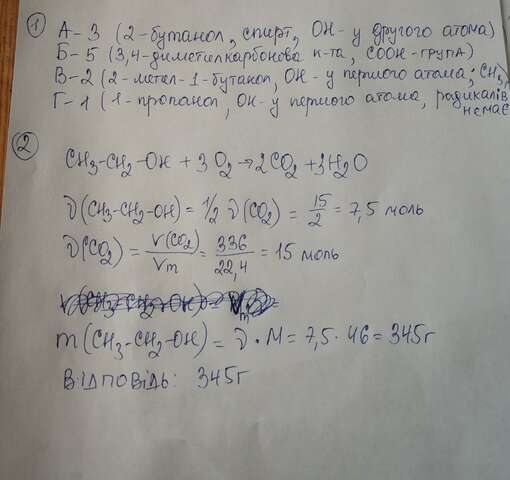 1
А-3 (2-бутанол, спирт, ОН-у другого атома)
Б-5 (3,4-диметилкарбонова к-та, СООН-група)
В-2 (2-метил-1-бутанол, ОН-у першого атома, CH₃)
Г-1 (1-пропанол, ОН-у першого атома, радикалів немає
2
CH₃-CH₂-OH + 3O₂ → 2CO₂ + 3H₂O
ν(CH₃-CH₂-OH) = 1/2 ν(CO₂) = 15/2 = 7,5 моль
ν(CO₂) = V(CO₂)/Vm = 336/22,4 = 15 моль
m(CH₃-CH₂-OH) = ν · M = 7,5 · 46 = 345г
ВІДПОВІДЬ: 345г